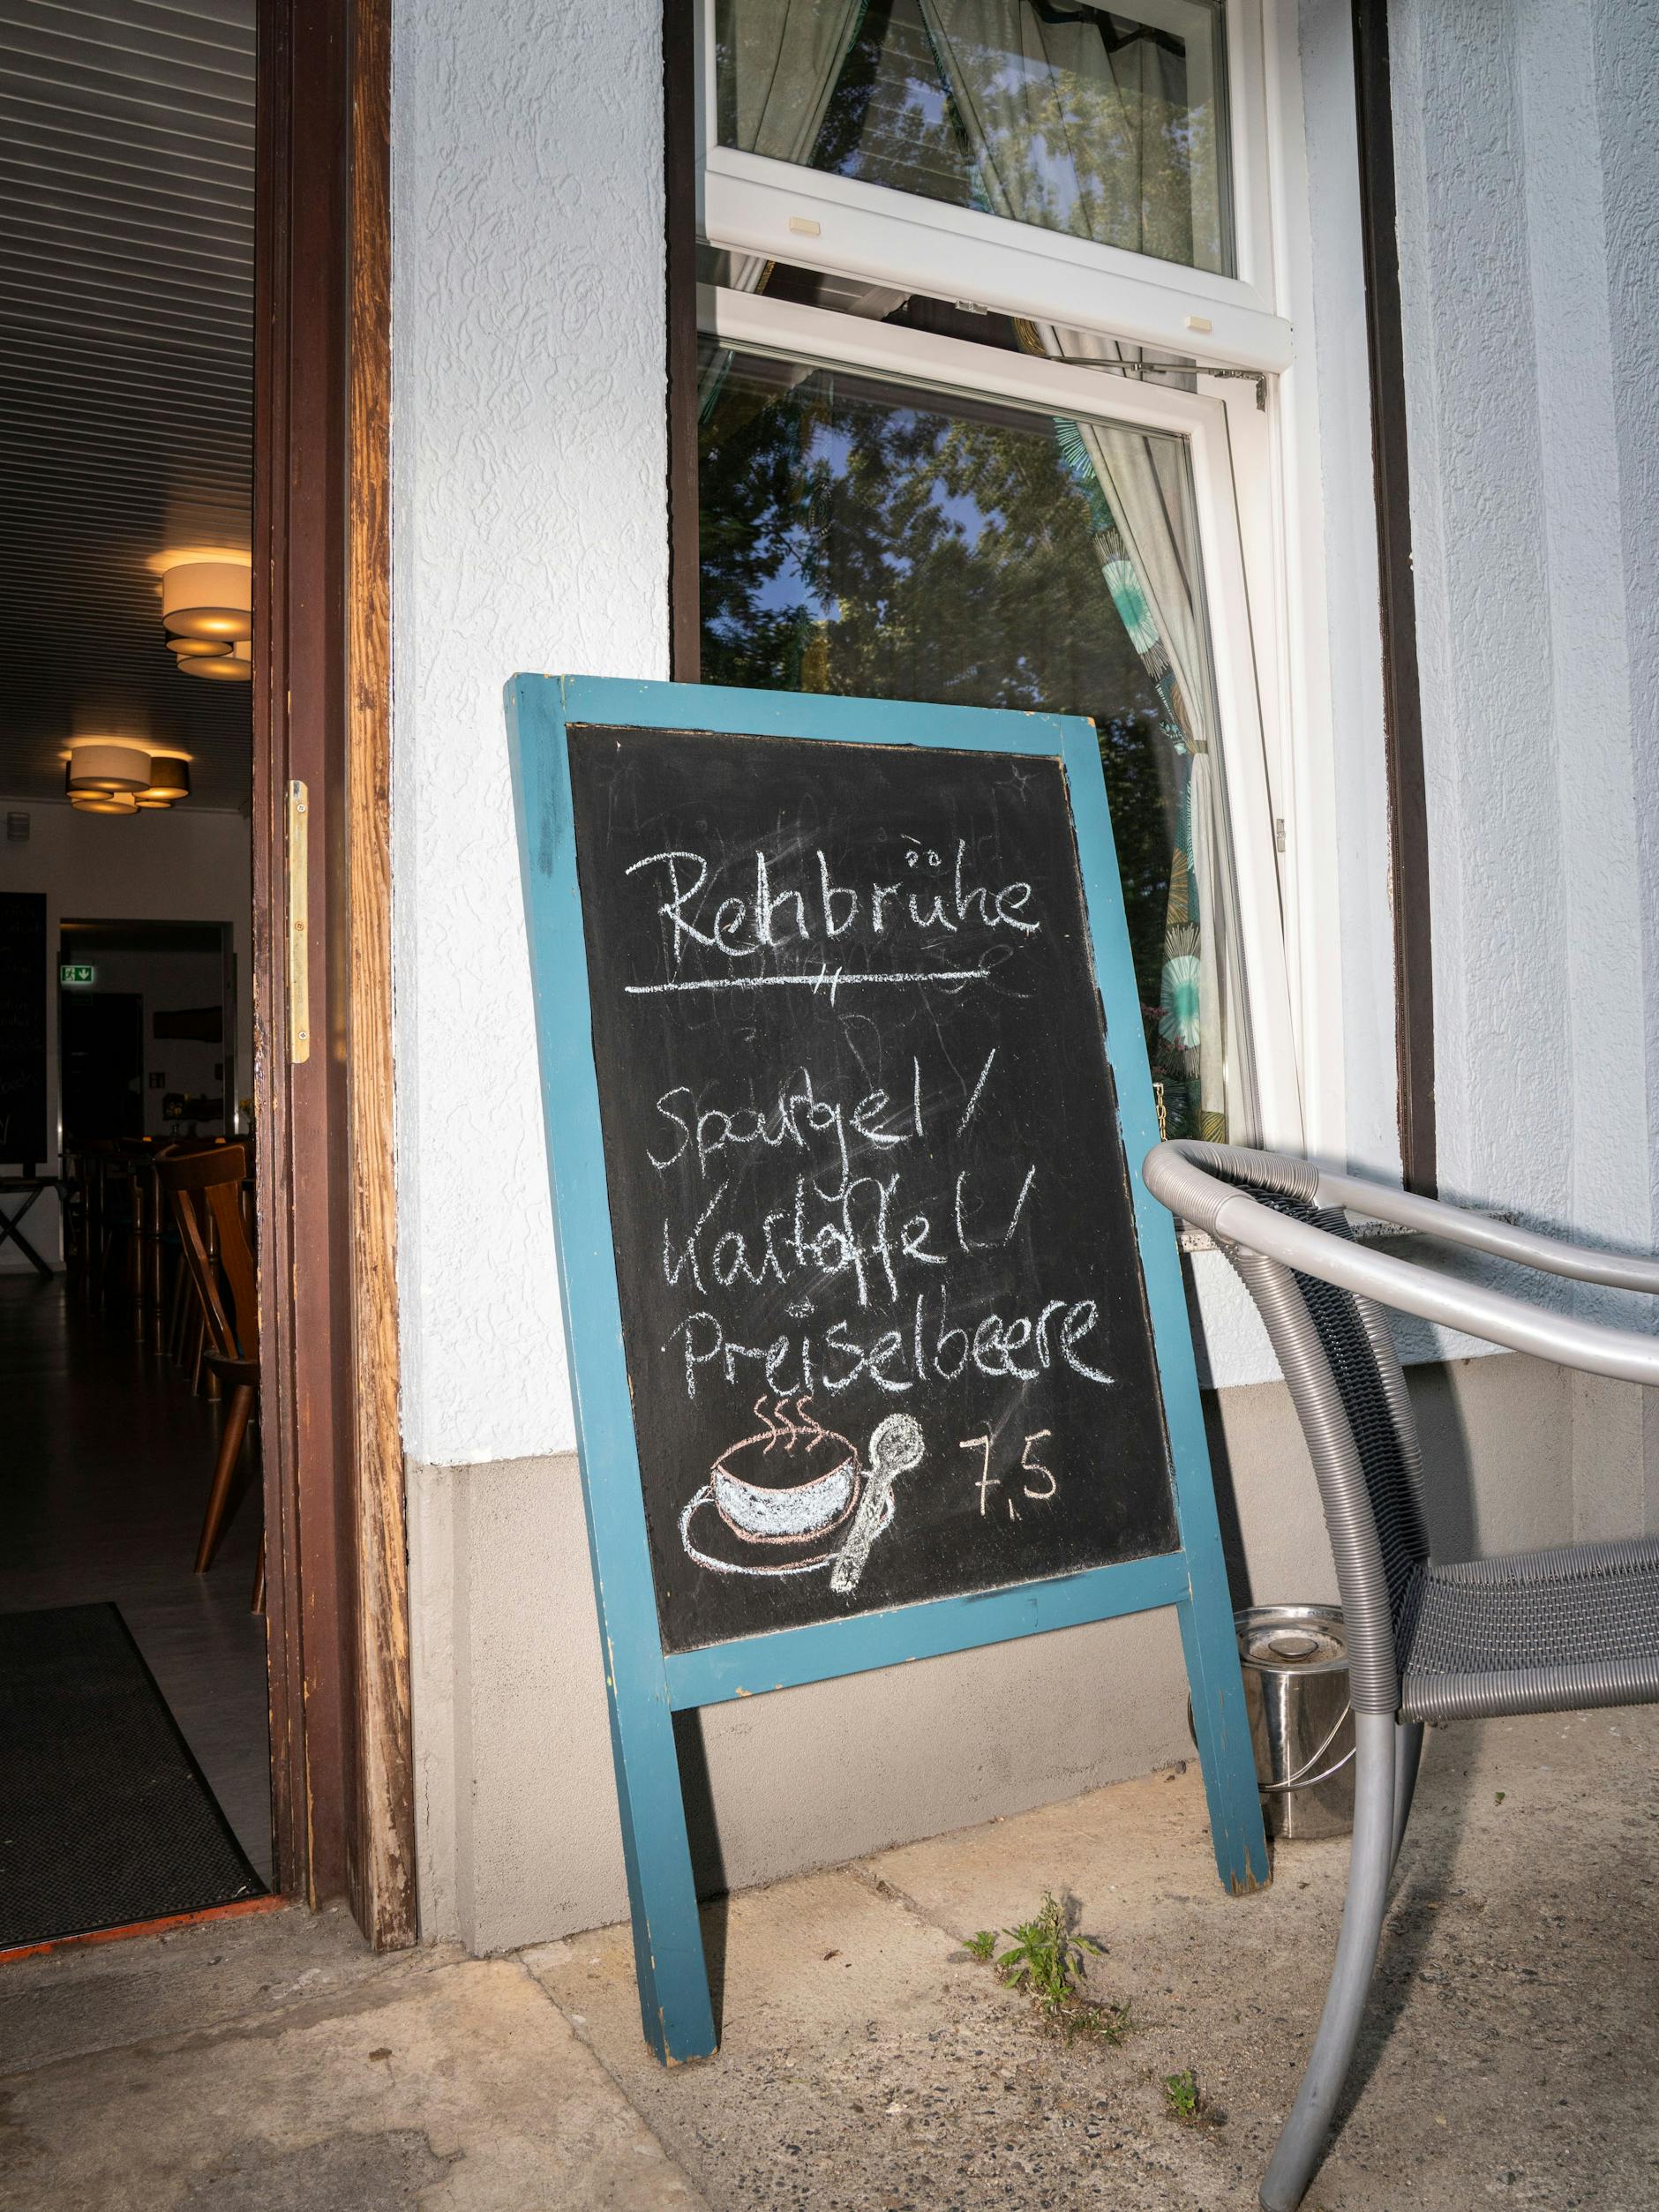 Rehbrühe
Spargel /
Kartoffel /
Preiselbeere
7,5